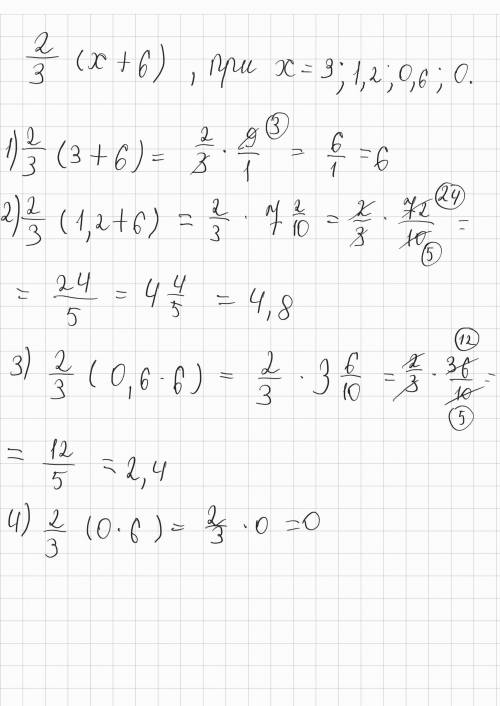 2/3 (x + 6), при x = 3; 1,2; 0,6; 0.
1) 2/3 (3 + 6) = 2/3 · 9/1 ③ = 6/1 = 6
2) 2/3 (1,2 + 6) = 2/3 · 7 2/10 = 2/3 · 72/10 ㉔ ⑤ =
= 24/5 = 4 4/5 = 4,8
3) 2/3 (0,6 · 6) = 2/3 · 3 6/10 = 2/3 · 36/10 ⑫ ⑤ =
= 12/5 = 2,4
4) 2/3 (0 · 6) = 2/3 · 0 = 0